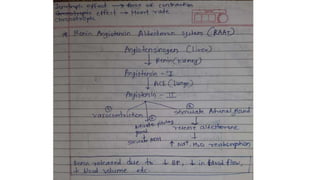 Ionotropic effect → Force of contraction
effect → Heart rate
Chronotropic
* Renin Angiotensin Aldosterone system (RAAS)
Angiotensinogen (Liver)
↓ Renin (Kidney)
Angiotensin - I
↓ ACE (Lungs)
Angiotensin - II
① vasoconstriction
②
gland
③ stimulate Adrenal gland
↓
release aldosterone
↓
↑ Na⁺, H₂O reabsorption
Renin released due to ↓ BP, ↓ in blood flow,
↓ blood volume etc